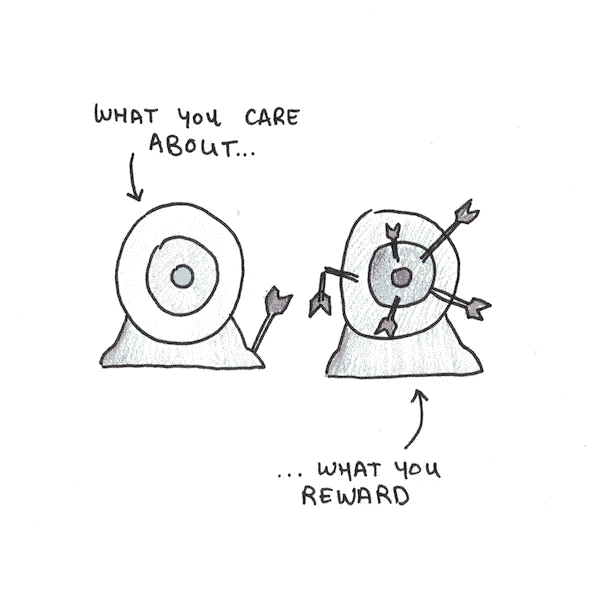 WHAT YOU CARE
ABOUT...
... WHAT YOU
REWARD